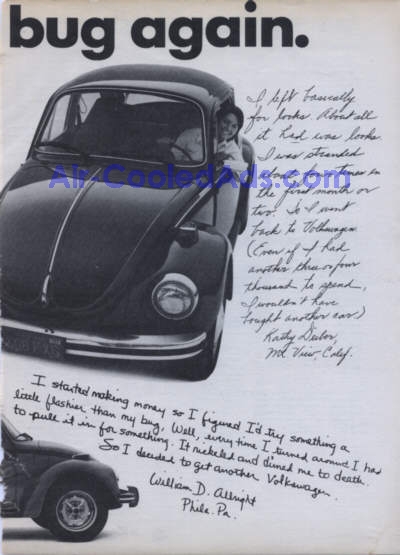 bug again.
I left basically
for looks. About all
it had was looks.
I was stranded
times in
the first month or
two. So I went
back to Volkswagen
(Even if I had
another three or four
thousand to spend,
I wouldn't have
bought another car.)
Kathy
Mt. View, Calif.
Air-CooledAds.com
I started making money so I figured I'd try something a
little flashier than my bug. Well, every time I turned around I had
to pull it in for something. It nickeled and dimed me to death.
So I decided to get another Volkswagen.
William D. Allright
Phila. Pa.